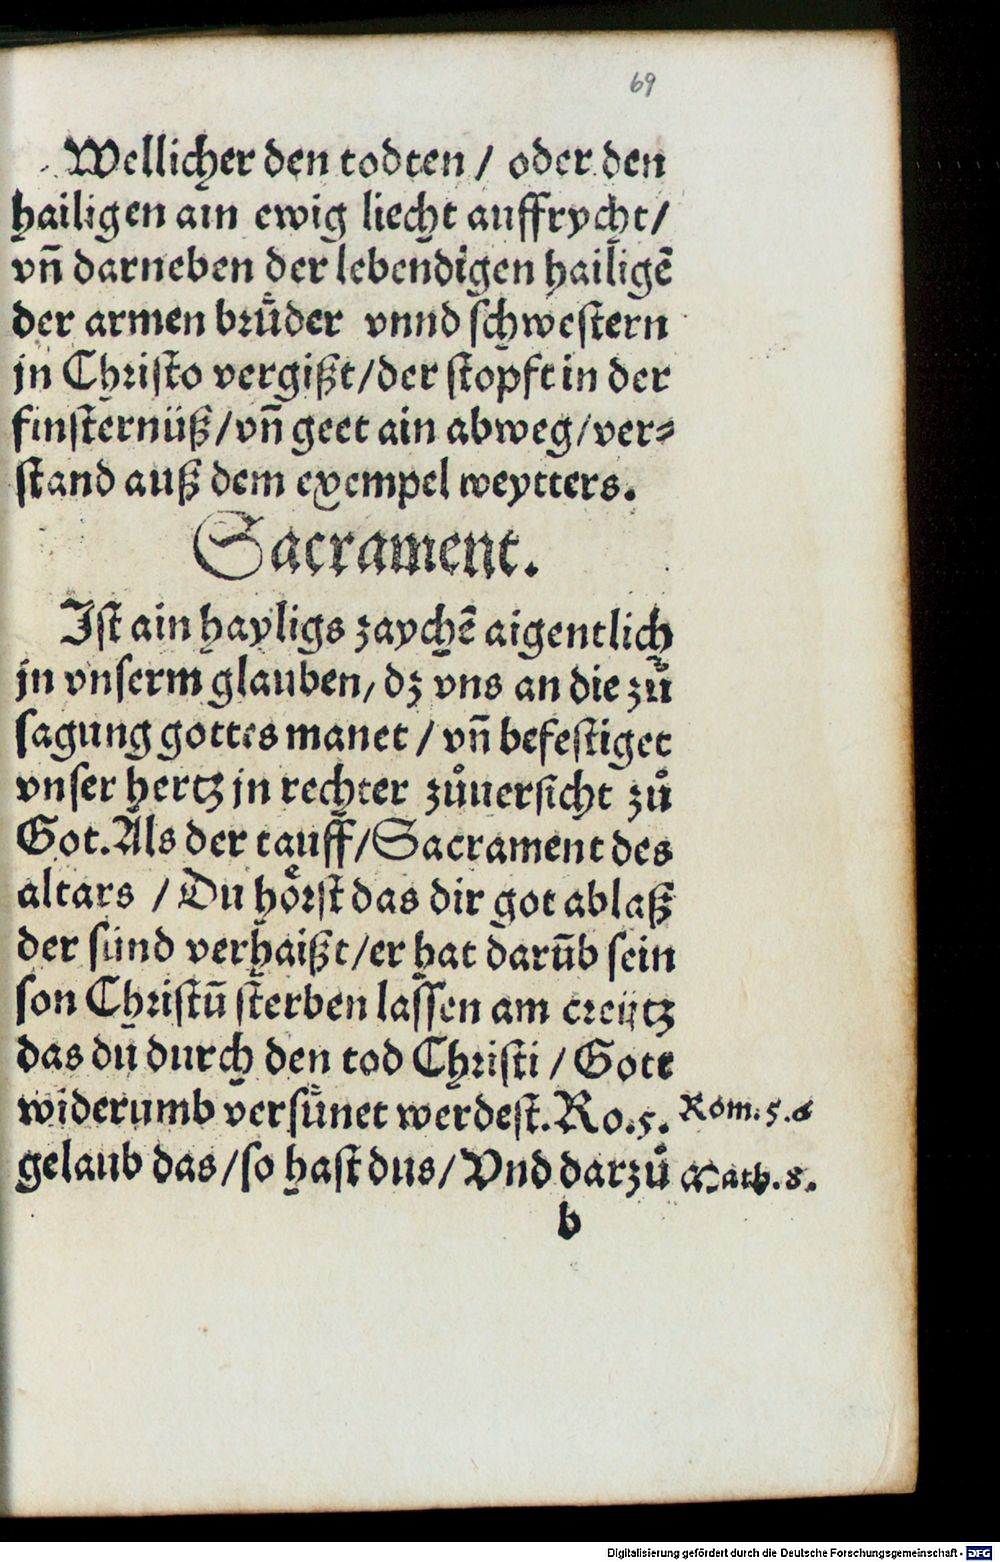 69
Wellicher den todten / oder den
hailigen ain ewig liecht auffrycht/
vñ darneben der lebendigen hailigẽ
der armen bruͤder vnnd schwestern
jn Christo vergißt/der stopft in der
finsternüß/vñ geet ain abweg/ver⸗
stand auß dem exempel weytters.
Sacrament.
Ist ain hayligs zaychẽ aigentlich
jn vnserm glauben/ dz vns an die zuͦ
sagung gottes manet / vñ befestiget
vnser hertz jn rechter zuͦuersicht zuͦ
Got. Als der tauff/Sacrament des
altars / Du hoͤrst das dir got ablaß
der sünd verhaißt/er hat darũb sein
son Christũ sterben lassen am creütz
das du durch den tod Christi / Gott
widerumb versuͤnet werdest. Ro.5. Rom.5.a
gelaub das/so hast dus/ Vnd darzuͦ Math.8.
b
Digitalisierung gefördert durch die Deutsche Forschungsgemeinschaft - DFG